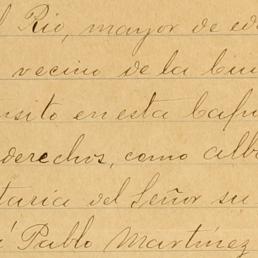 l Rio, mayor de eda
vecino de la
nsito en esta Capi
derechos, como alba
taria del Señor su
é Pablo Martinez